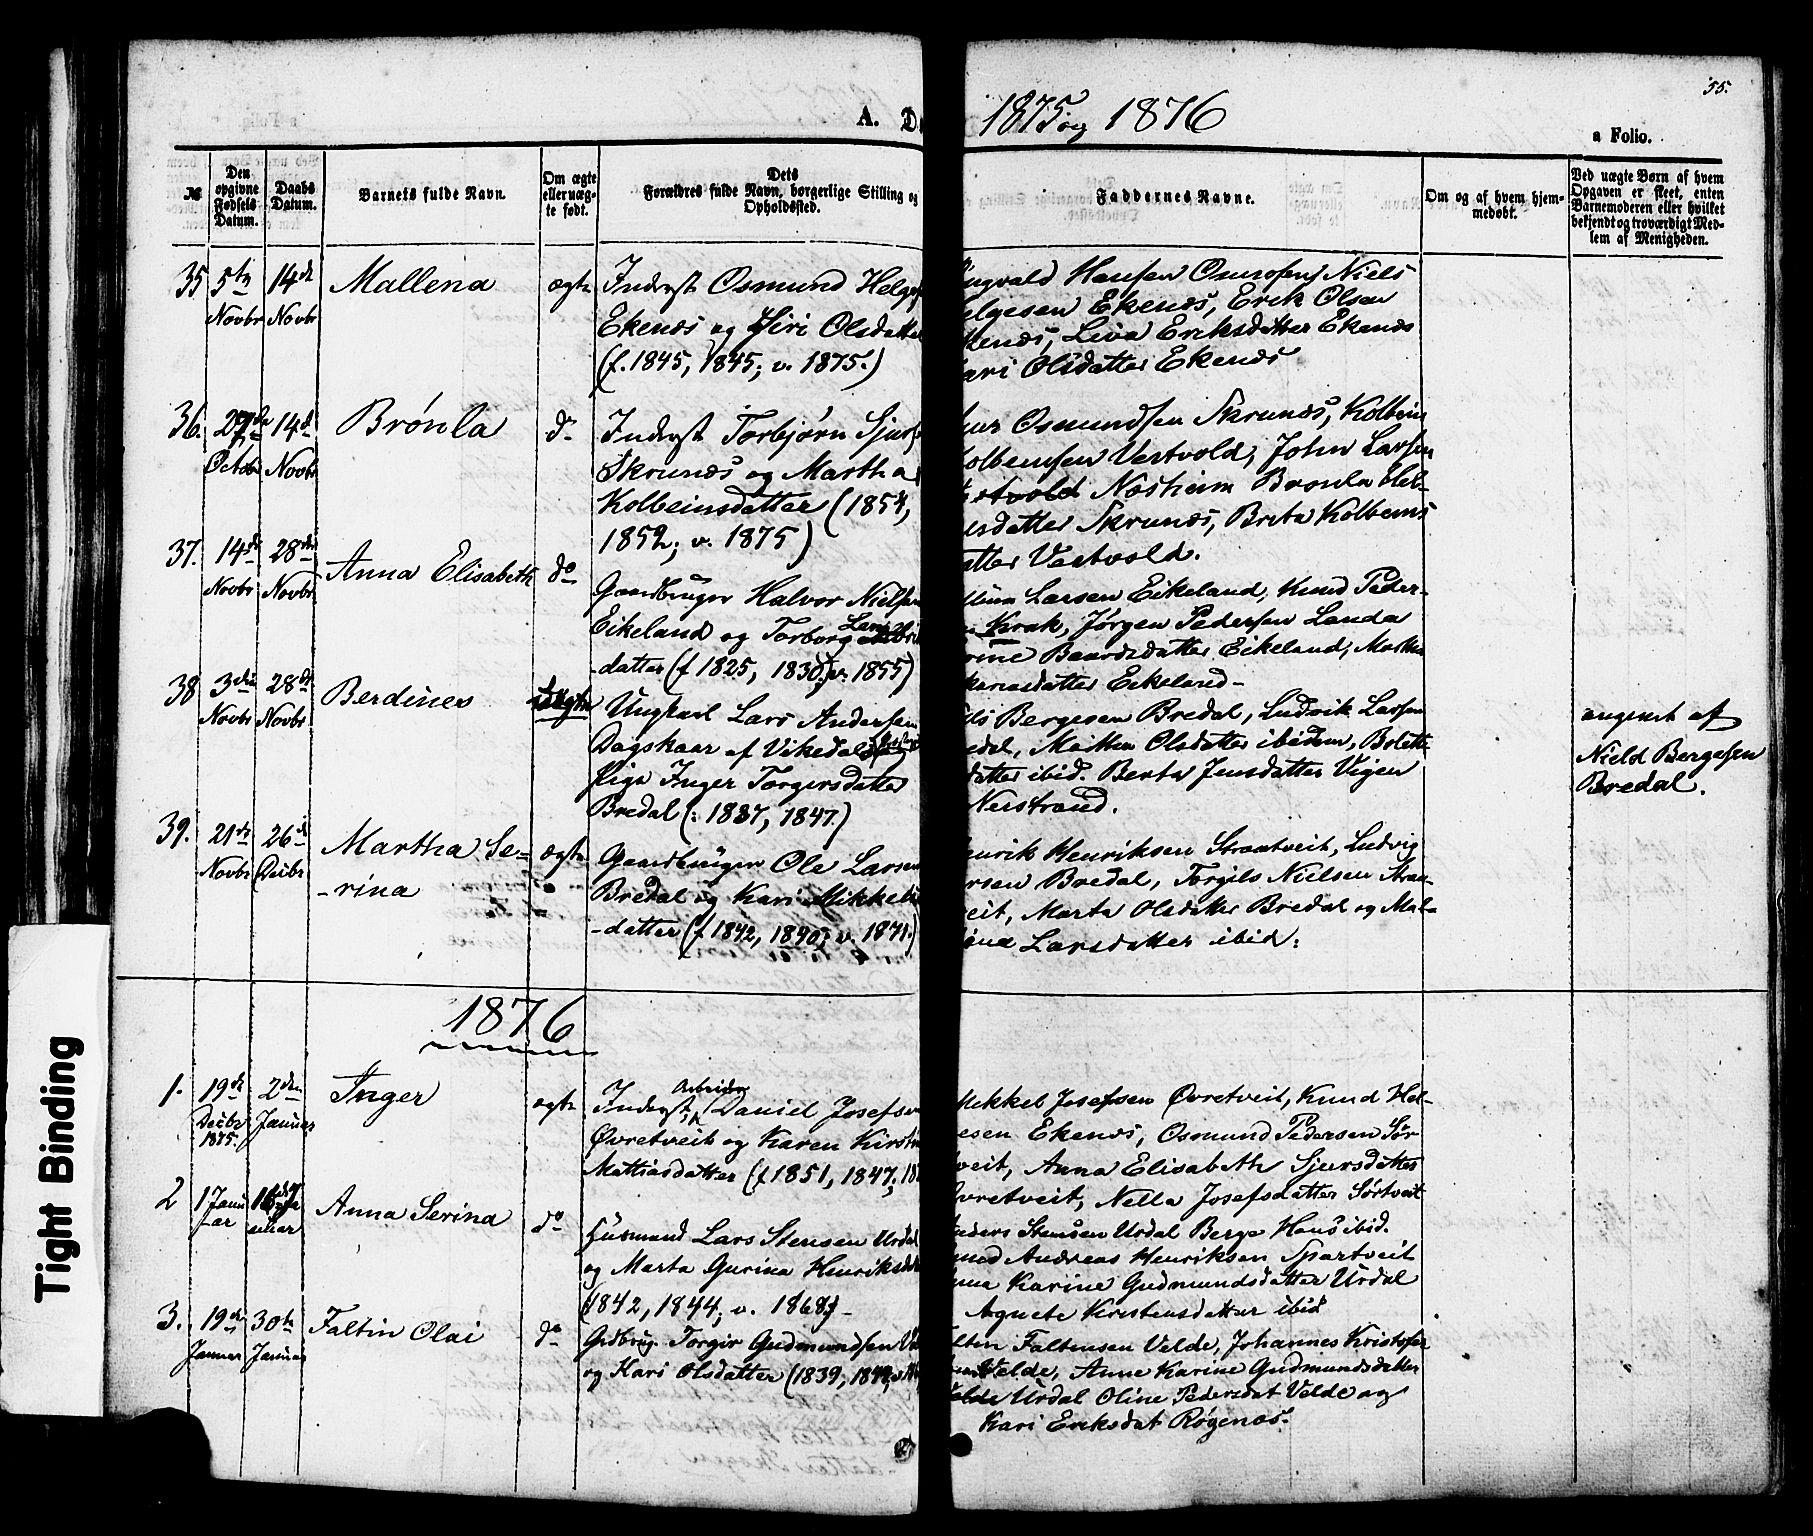 55.
A. D
1875 og 1876
a Folio.
№
Den opgivne Fødsels Datum.
Daabs Datum.
Barnets fulde Navn.
Om ægte eller uægte født.
Dets Forældres fulde Navn, borgerlige Stilling og Opholdssted.
Faddernes Navne.
Om og af hvem hjemmedøbt.
Ved uægte Børn af hvem Opgaven er skeet, enten Barnemoderen eller hvilket bekjendt og troværdigt Medlem af Menigheden.
35 5te Novbr 14de Novbr Mallena ægte
Inderst Osmund Helge
Ekenæs og Siri Olsdatte
(f. 1845, 1845; v. 1875.)
Hansen Niels
Ekenæs, Erik Olsen
Eriksdatter Ekenæs
Olsdatter Ekenæs
36. 27de Octobr 14d Novbr Brønla do
Inderst Torbjørn Sjurs
Skrunæs og Martha
Kolbeinsdatter (1854,
1852; v. 1875)
Osmundsen Skrunæs, Kolbein
Kolbeinsen Vestvold, John Larsen
Næsheim Brønla
sdatter Skrunæs, Brita Kolbeins
atter Vestvold.
37. 14de Novbr 28de Novbr Anna Elisabeth do
Gaardbruger Halvor Nielsen
Eikeland og Torborg Lars
-datter (f 1825, 1830; v. 1855)
Larsen Eikeland, Knud Peder-
Krak, Jørgen Pedersen Landa
Baardsdatter Eikeland, Marthe
Eikeland-
38 3die Novbr 28de Novbr Berdines uægte
Ungkarl Lars Andersen
Dagskaar af Vikedal
Pige Inger Torgersdatter
Bredal (: 1837, 1847.)
Bergesen Bredal, Ludvik Larsen
edal, Marthe Olsdatter ibidem,
datter ibid. Berta Jensdatter Vigen
Nerstrand.
angivet af
Nield Bergesen
Bredal.
39. 21de Novbr 26de Decbr Martha Se-
-rina
ægte
Gaardbruger Ole Larsen
Bredal og Kari Mikkels
-datter (f 1842, 1840; v. 1871.)
Henrik Henriksen Straatveit, Ludvig
arsen Bredal, Torgils Nielsen Straa-
veit, Marta Olsdatter Bredal og Mal-
Larsdatter ibid.
1876
1. 19de Decbr 1875. 2den Januar Inger ægte
Arbeider
Inderst, Daniel Josefsen
Øvretveit og Karen Kirstine
Mathiasdatter (f 1851, 1847; 18
Mikkel Josefsen Øvretveit, Knud Hel-
gesen Ekenæs, Osmund Pedersen Sør
tveit, Anna Elisabeth Sjursdatter
Øvretveit, Nella Josefsdatter Sørtveit
2 1 Januar Januar Anna Serina do
Husmand Lars Stensen Urdal
og Marta Gurina Henriksdat
(1842, 1844; v. 1868)-
Anders Stensen Urdal Berge Hans ibid.
Andreas Henriksen
Karine Gudmundsdatter Urdal
Agnete Kristensdatter ibid
3. 19de Januar 30te Januar Faltin Olai do
Grdbrug. Torgir Gudmundsen
og Kari Olsdatter (1839,
Faltinsen Velde, Johannes Kristofer
Velde, Anne Karine Gudmundsdatter
Urdal Oline Pedersdat Velde og
Kari Eriksdat Røgenæs.
Tight Binding